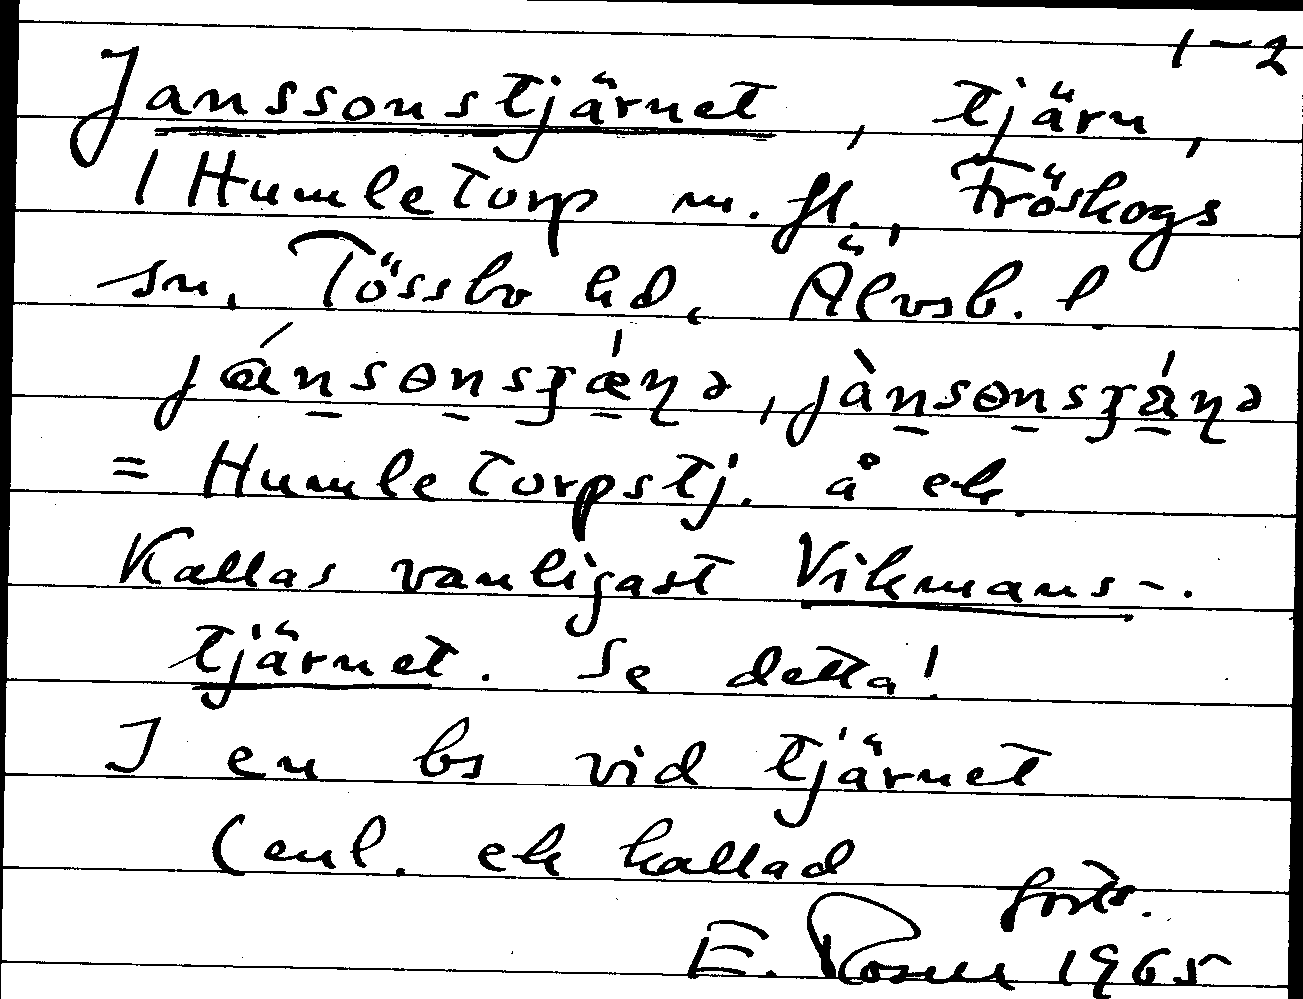 1-2
Janssonstjärnet, tjärn,
1 Humletorp m. fl., Fröskogs
sn, Tössbo hd, Älvsb. l.
= Humletorpstj. å ek.
Kallas vanligast Vikmans-.
tjärnet. Se detta!
I en bs vid tjärnet
(enl. ek kallad
forts.
E. Rosen 1965